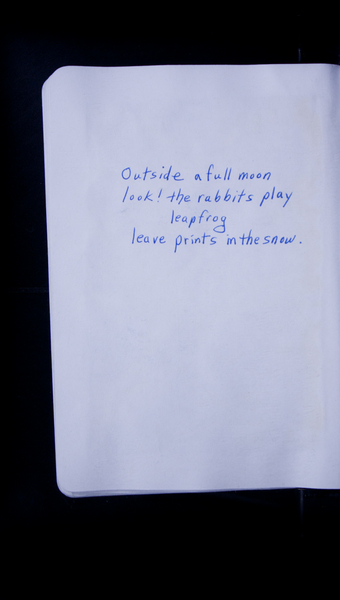 Outside a full moon
look! the rabbits play
leapfrog
leave prints in the snow.